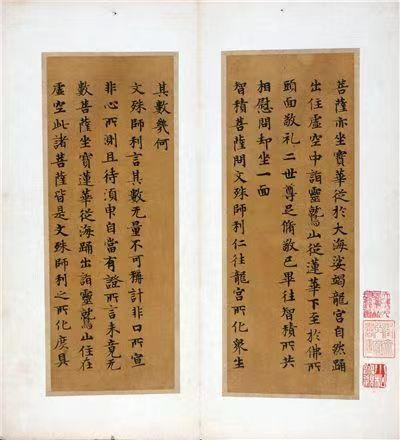 菩薩亦坐寶華從於大海娑竭龍宮自然踊
出住虛空中詣靈鷲山從蓮華下至於佛所
頭面敬礼二世尊足脩敬已畢往智積所共
相慰問却坐一面
智積菩薩問文殊師利仁往龍宮所化衆生
其數幾何
文殊師利言其數无量不可稱計非口所宣
非心所測且待須臾自當有證所言未竟无
數菩薩坐寶蓮華從海踊出詣靈鷲山住在
虛空此諸菩薩皆是文殊師利之所化度具